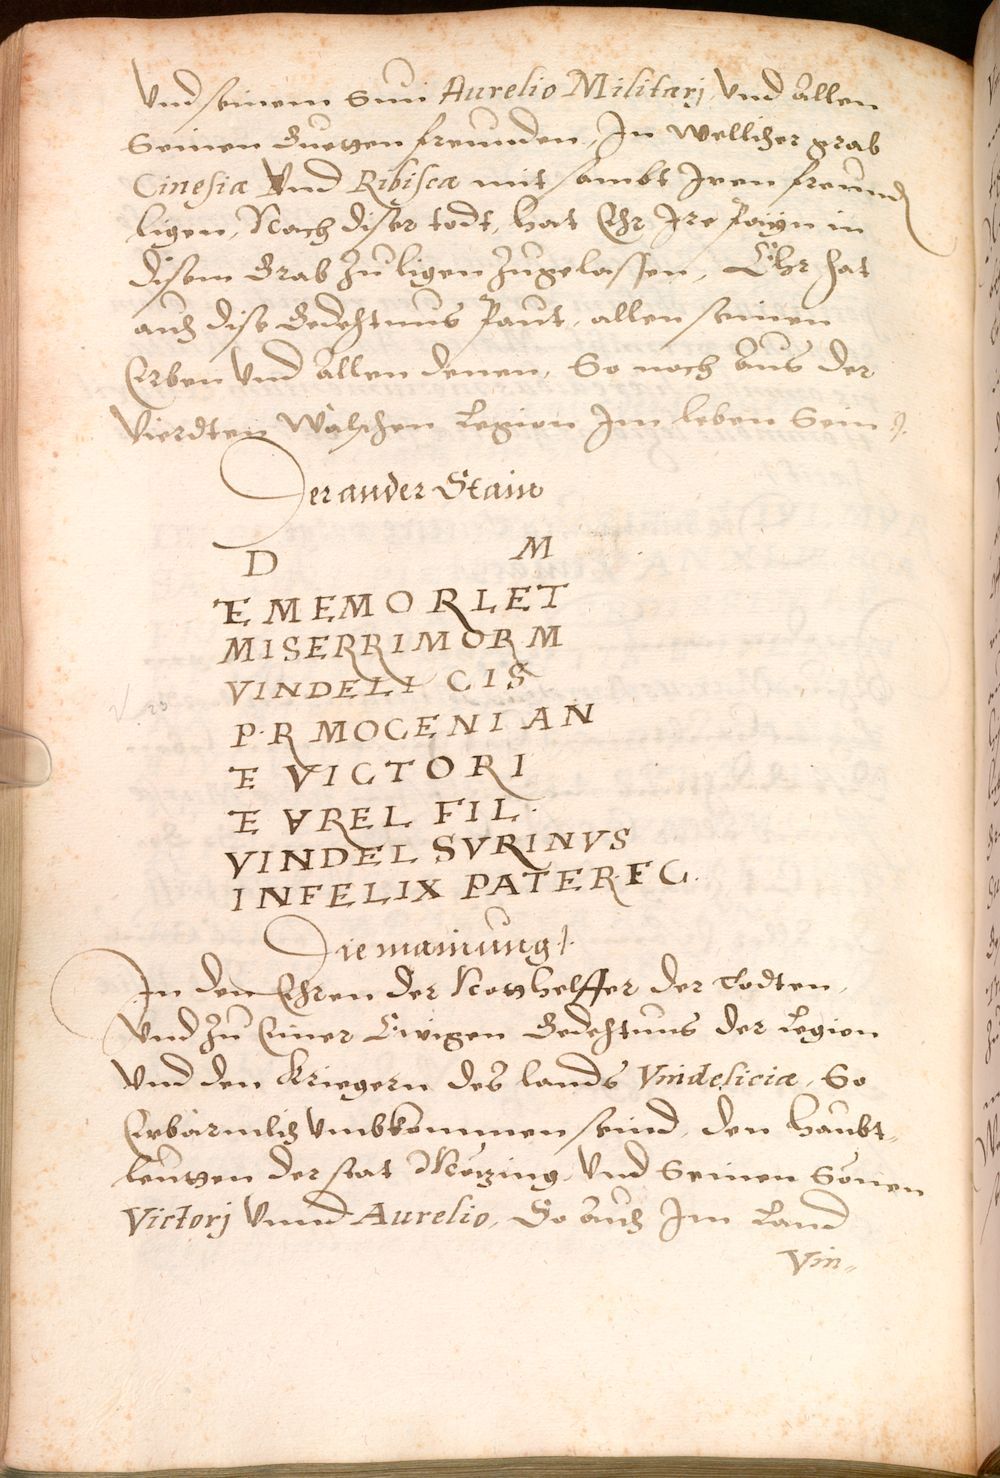 Vnd seinem Sun Aurelio Militarj, Vnd allen
Seinen Guetten freunden, In wellicher grab
Cinesia Vnd Ribisca mit sambt Iren freund
ligen, Nach diser todt, hat Ehr Ire Payn in
disem Grab Zu ligen Zugelassen, Ehr hat
auch dise Gedechtnus Paut, allen seinen
Erben Vnd allen denen, So noch aus der
Vierdten Wälschen Legion Im leben Sein
Der ander Stain
D M
E MEMORI ET
MISERRIMOR M
VINDELI CIS
P. R MOCENI AN
E VICTORI
E AVREL FIL.
VINDEL SVRINVS
INFELIX PATER. F C.
Die mainung
In den Ehren der Notthelffer der Todten,
Vnd Zu Einer Ewigen Gedechtnus der Legion
Vnd den Kriegern des lands Vindelicia, So
Erbärmlich Vmbkommen seind, den haubt-
leutten der stat Metzing, Vnd Seinen Sönen
Victorj Vnnd Aurelio, So auch Im Land
Vin-